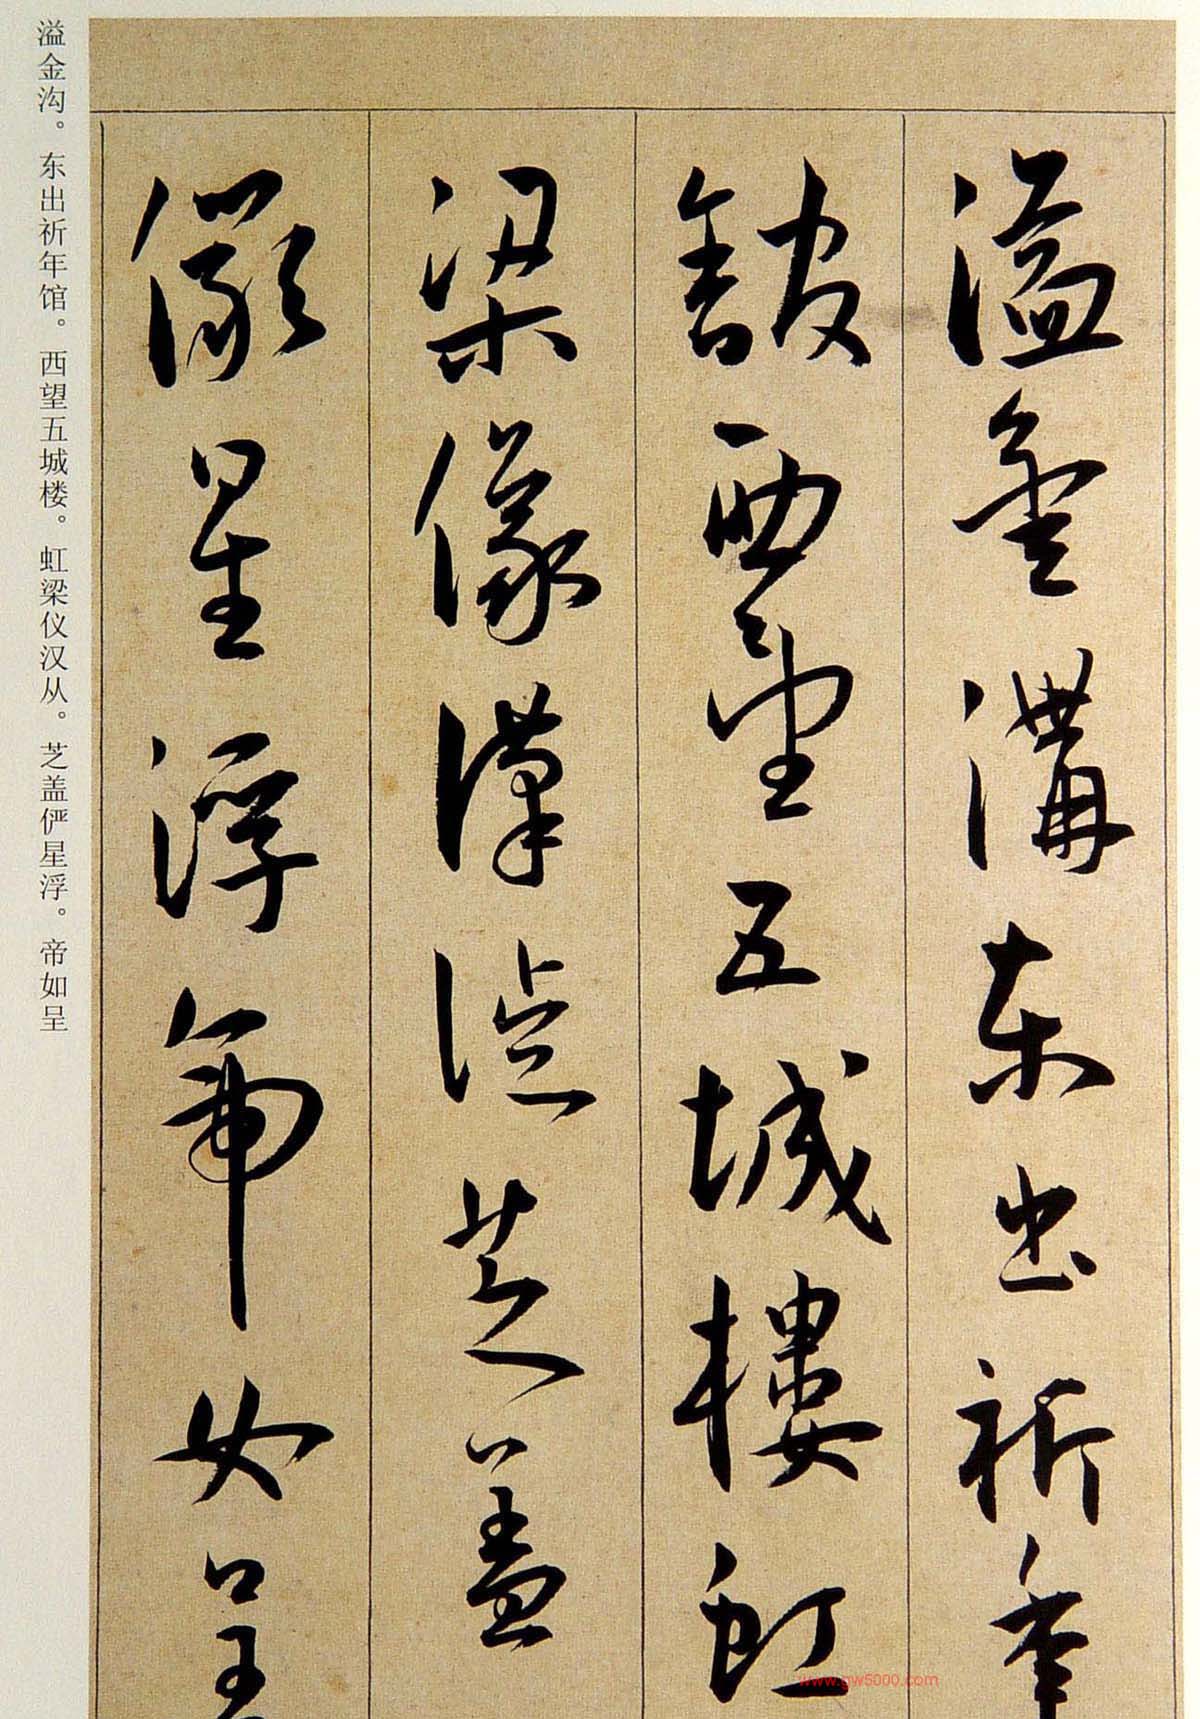 溢金溝東出祈年
館西望五城樓虹
梁像漢從芝蓋
儼星浮帝女呈
溢金沟。东出祈年馆。西望五城楼。虹梁仪汉从。芝盖俨星浮。帝如呈
www.gw5000.com